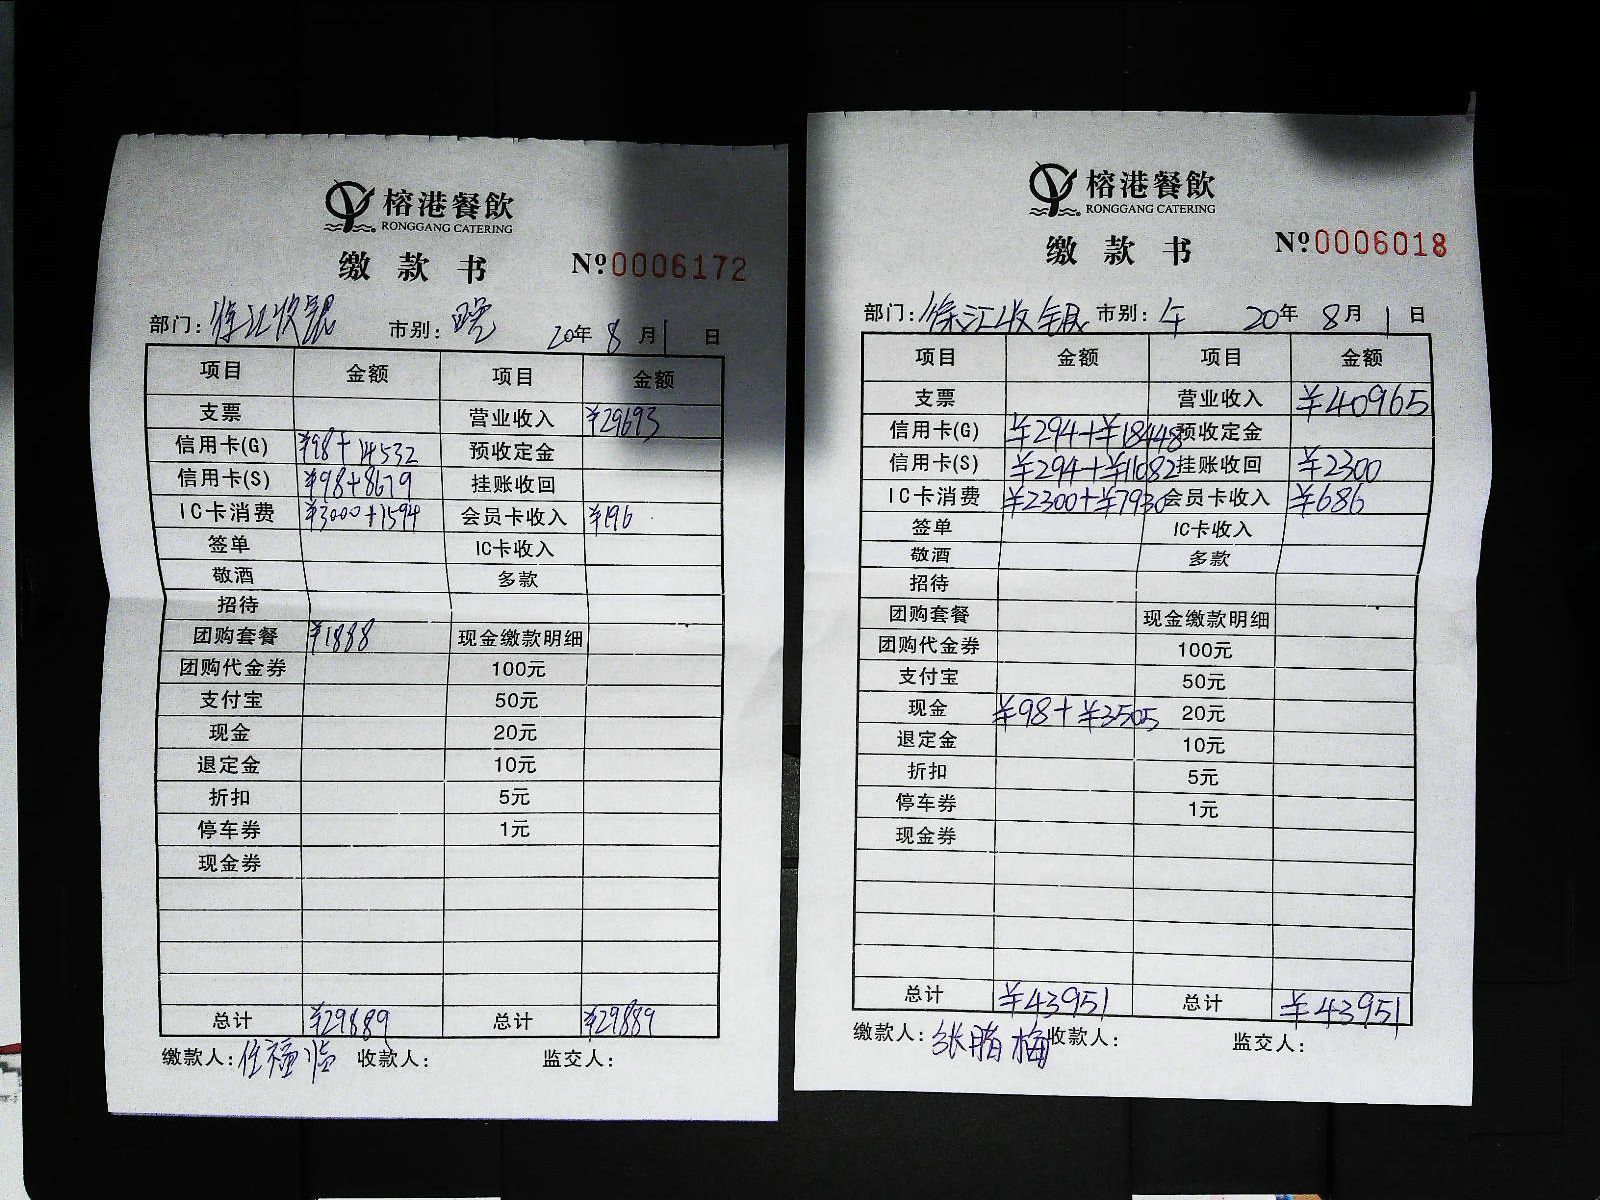 榕港餐飲
RONGGANG CATERING
缴款书 Nº0006172
部门：徐汇收银 市别：晚 20年8月1日
项目 金额 项目 金额
支票 营业收入 ¥29693
信用卡(G) ¥98+14532 预收定金
信用卡(S) ¥98+8679 挂账收回
IC卡消费 ¥3000+1594 会员卡收入 ¥196
签单 IC卡收入
敬酒 多款
招待
团购套餐 ¥1888 现金缴款明细
团购代金券 100元
支付宝 50元
现金 20元
退定金 10元
折扣 5元
停车券 1元
现金券
总计 ¥29889 总计 ¥29889
缴款人：任福临 收款人： 监交人：
榕港餐飲
RONGGANG CATERING
缴款书 Nº0006018
部门：徐汇收银 市别：午 20年8月1日
项目 金额 项目 金额
支票 营业收入 ¥40965
信用卡(G) ¥294+¥18448 预收定金
信用卡(S) ¥294+¥11082 挂账收回 ¥2300
IC卡消费 ¥2300+¥7930 会员卡收入 ¥686
签单 IC卡收入
敬酒 多款
招待
团购套餐 现金缴款明细
团购代金券 100元
支付宝 50元
现金 ¥98+¥3505 20元
退定金 10元
折扣 5元
停车券 1元
现金券
总计 ¥43951 总计 ¥43951
缴款人：张腊梅 收款人： 监交人：